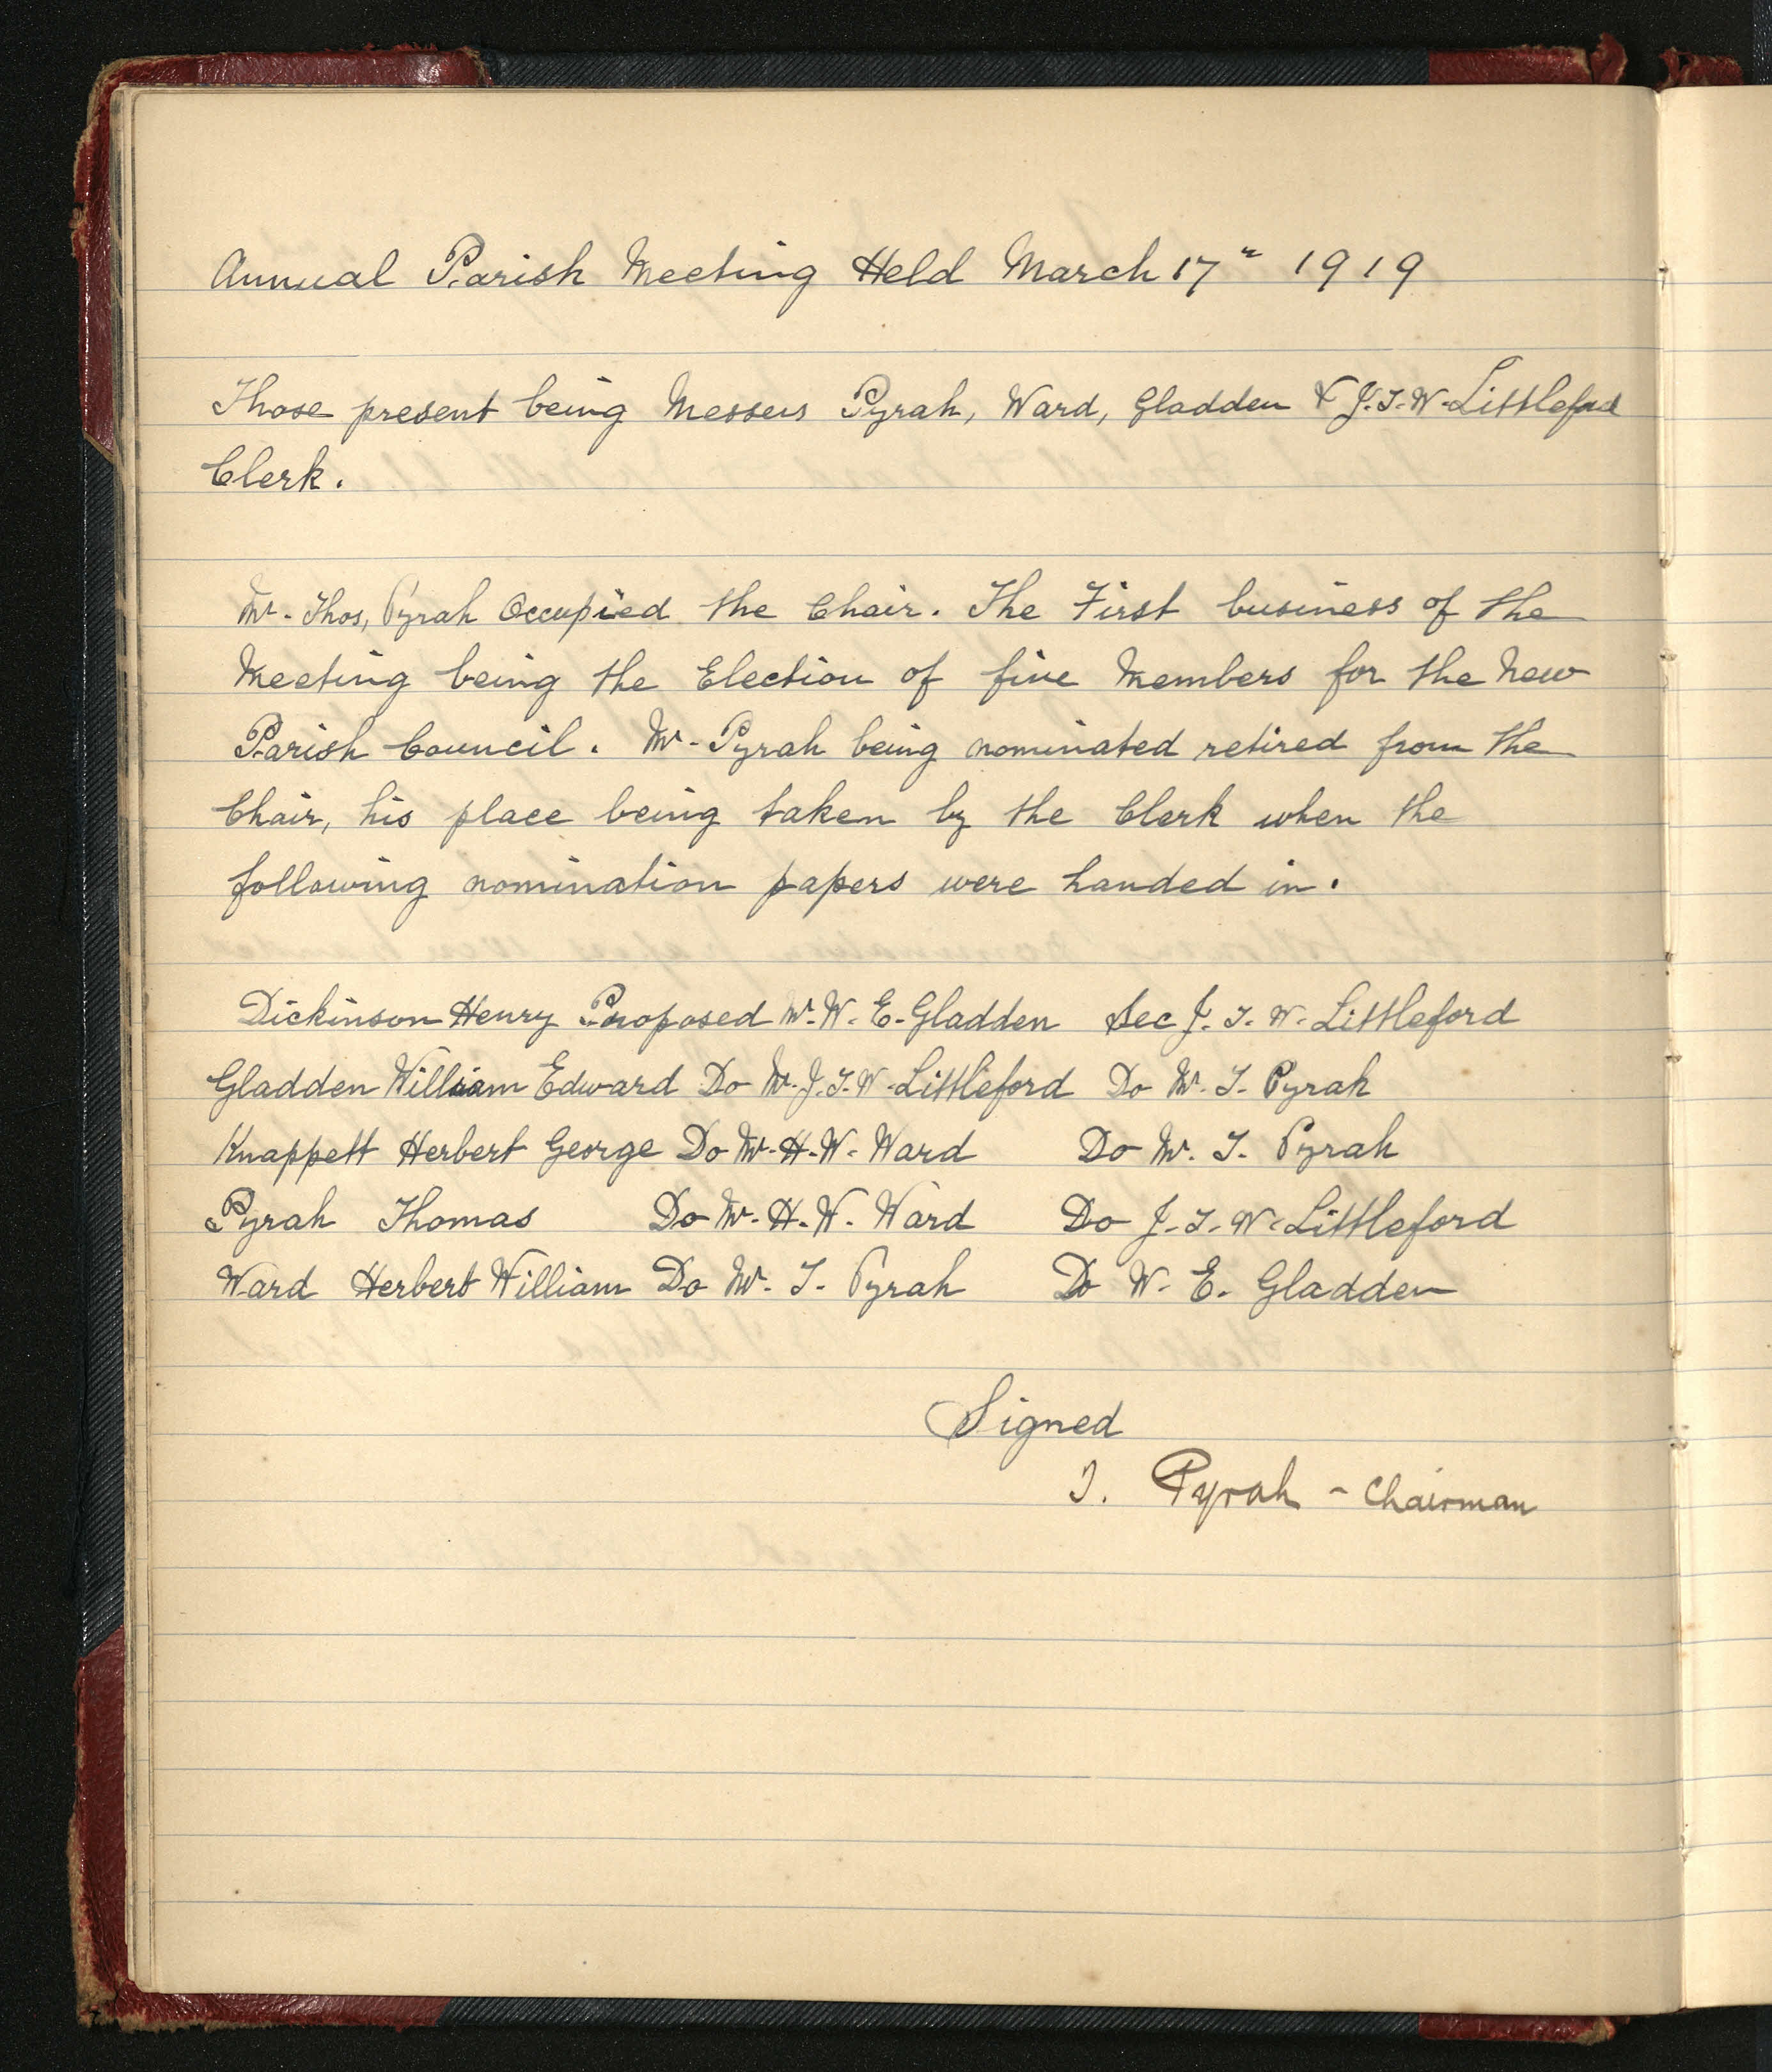 Annual Parish Meeting Held March 17" 1919
Those present being Messers Pyrah, Ward, Gladden & J.T.W. Littleford
Clerk.
Mr. Thos, Pyrah Occupied the Chair. The First business of the
Meeting being the Election of five Members for the New
Parish Council. Mr. Pyrah being nominated retired from the
Chair, his place being taken by the Clerk when the
following nomination papers were handed in.
Dickinson Henry Proposed Mr. W. E. Gladden Sec J. T. W. Littleford
Gladden William Edward Do Mr. J.T.W. Littleford Do Mr. T. Pyrah
Knappett Herbert George Do Mr. H.W. Ward Do Mr. T. Pyrah
Pyrah Thomas Do Mr. H.W. Ward Do J.T.W. Littleford
Ward Herbert William Do Mr. T. Pyrah Do W. E. Gladden
Signed
T. Pyrah - Chairman